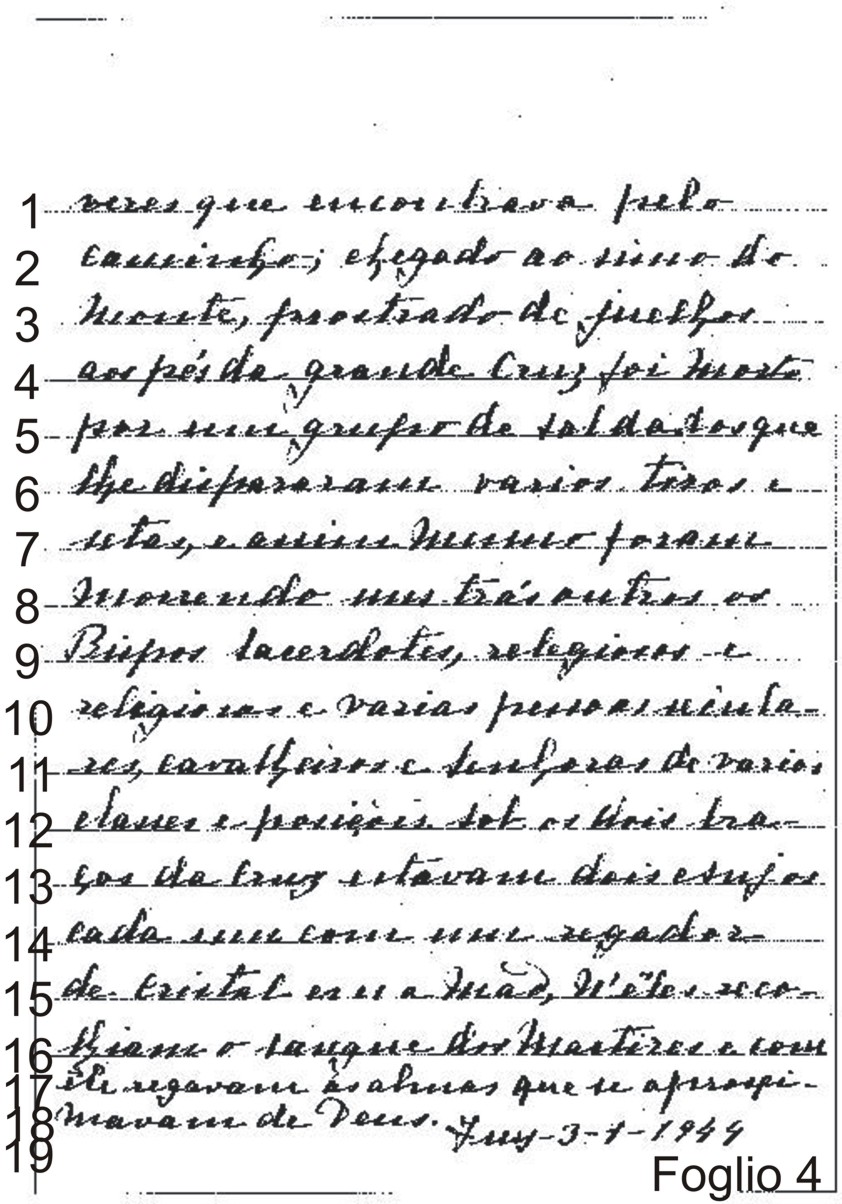 1 veres que encontrava pelo
2 caminho; chegado ao simo do
3 monte, prostrado de juelhos
4 aos pés da grande Cruz foi morto
5 por um grupo de soldados que
6 lhe dispararam varios tiros e
7 setas, e assim mesmo foram
8 morrendo uns trás outros os
9 Bispos Sacerdotes, religiosos e
10 religiosas e varias pessoas secula-
11 res, cavalheiros e senhoras de varias
12 classes e posições. Sob os dois bra-
13 ços da Cruz estavam dois Anjos
14 cada um com um regador
15 de cristal em a mão, N'êles reco-
16 lhiam o sangue dos Martires e com
17 êle regavam as almas que se aproxi-
18 mavam de Deus.
19 Tuy-3-1-1944
Foglio 4